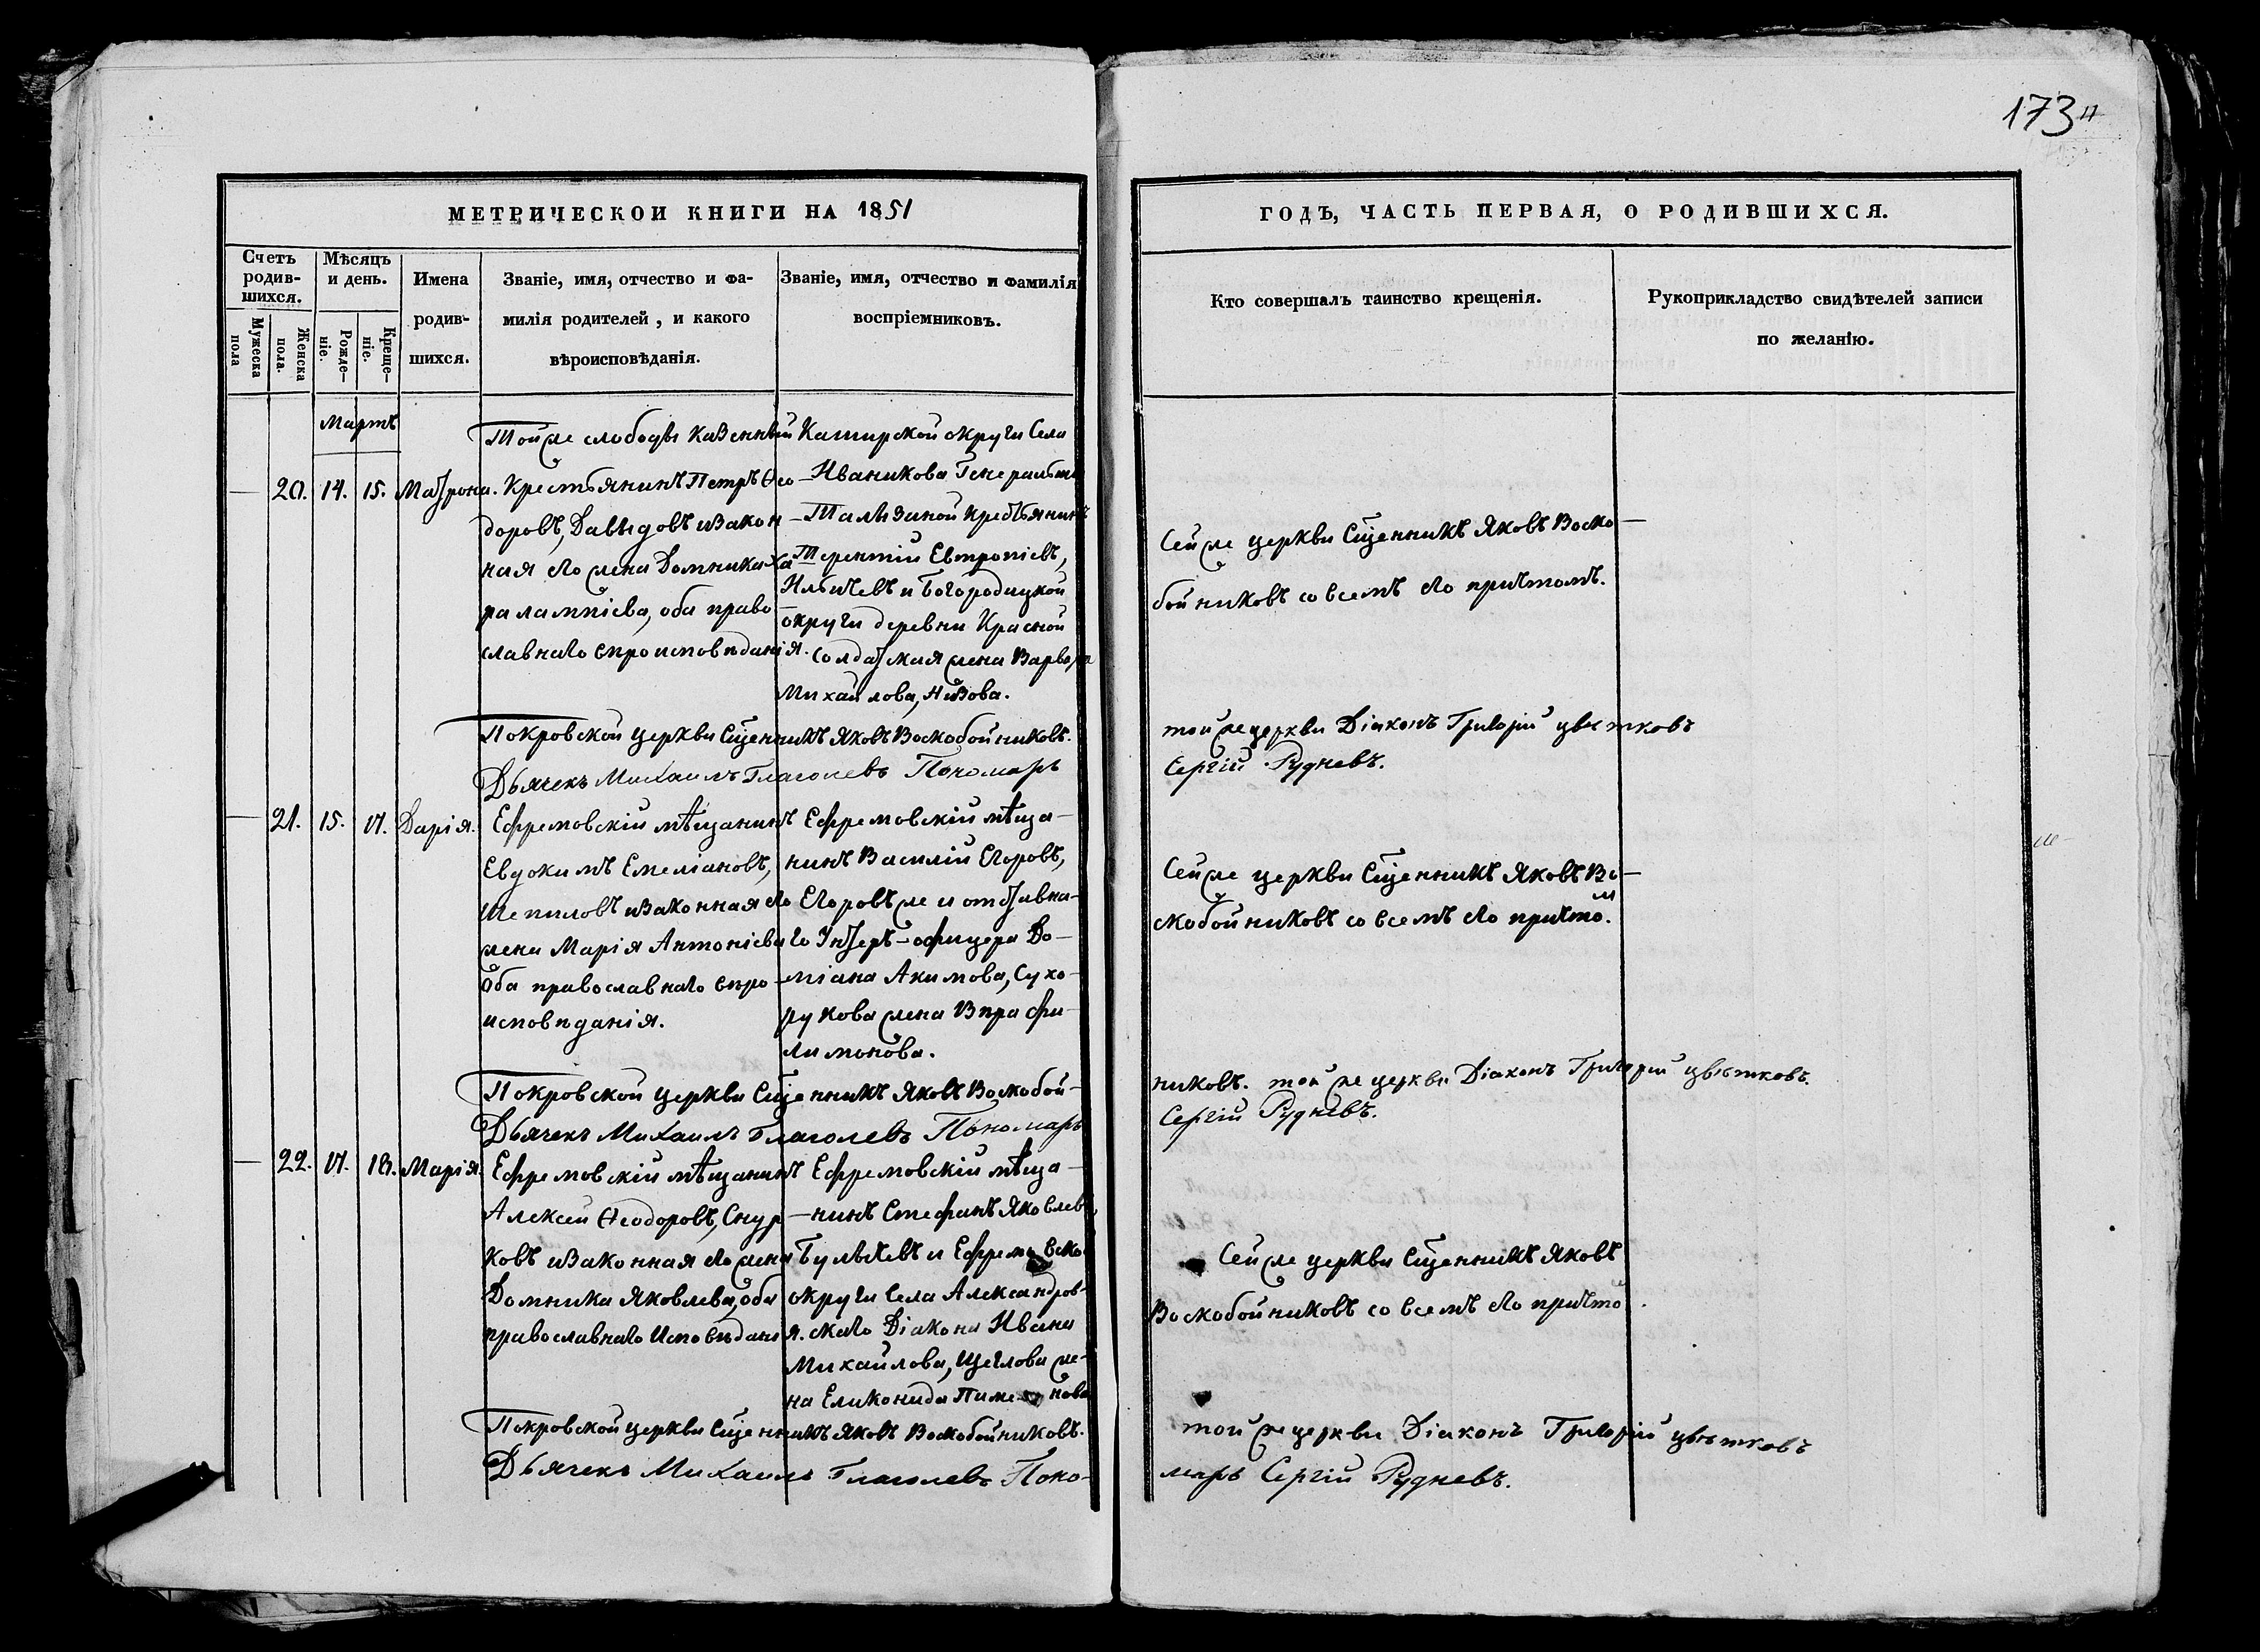 173
МЕТРИЧЕСКОЙ КНИГИ НА 1851
ГОДЪ, ЧАСТЬ ПЕРВАЯ, О РОДИВШИХСЯ.
Счетъ родившихся.
Мужеска пола
Женска пола.
Мѣсяцъ и день.
Рожденіе.
Крещеніе.
Имена
родив-
шихся.
Званіе, имя, отчество и фа-
милія родителей, и какого
вѣроисповѣданія.
Званіе, имя, отчество и фамилія
воспріемниковъ.
Кто совершалъ таинство крещенія.
Рукоприкладство свидѣтелей записи
по желанію.
Мартъ
— 20. 14. 15. Матрона.
Той же слободы казенный
Крестьянинъ Петръ Ѳео-
доровъ, Давыдовъ и закон-
ная его жена Домника Ха-
ралампіева, оба право-
славнаго вѣроисповѣданія.
Каширской округи Села
Иваникова
Талызиной Крестьянинъ
Терентій Евтропіевъ,
Ильичевъ и Богородицкой
округи деревни Красной
Солдатская жена Варвара
Михайлова, Низова.
Сей же церкви Сщенникъ Яковъ Воско-
бойниковъ со всемъ его причтомъ.
Покровской церкви Сщенникъ Яковъ Воскобойниковъ.
той же церкви Діаконъ Григорій Цвѣтковъ
Дьячекъ Михаилъ Глаголевъ Пономарь
Сергій Рудневъ.
— 21. 15. 17. Дарія.
Ефремовскій мѣщанинъ
Евдокимъ Емеліановъ,
Шепиловъ и законная его
жена Марія Антоніева
Оба православнаго вѣро-
исповѣданія.
Ефремовскій мѣща-
нинъ Василій Егоровъ,
Егоровъ же и отставна-
го Унтеръ-офицера До-
міана Акимова, Сухо-
рукова жена Вѣра Фи-
лимонова.
Сей же церкви Сщенникъ Яковъ Во-
скобойниковъ со всемъ его причтом.
Покровской церкви Сщенникъ Яковъ Воскобой-
никовъ. той же церкви Діаконъ Григорій Цвѣтковъ.
Дьячекъ Михаилъ Глаголевъ Пономарь
Сергій Рудневъ.
— 22. 17. 18. Марія.
Ефремовскій мѣщанинъ
Алексей Ѳеодоровъ, Снур-
ковъ и законная его жена
Домника Яковлева, оба
православнаго Исповѣданія.
Ефремовскій мѣща-
нинъ Стефанъ Яковлевъ,
Булычевъ и Ефремовско
округи Села Александров-
скаго Діакона Ивана
Михайлова, Щеглова же-
на Еликонида Пименова
Сей же церкви Сщенникъ Яковъ
Воскобойниковъ со всемъ его причто.
Покровской церкви Сщенникъ Яковъ Воскобойниковъ.
той же церкви Діаконъ Григорій Цвѣтковъ
Дьячекъ Михаилъ Глаголевъ Поно-
марь Сергій Рудневъ.